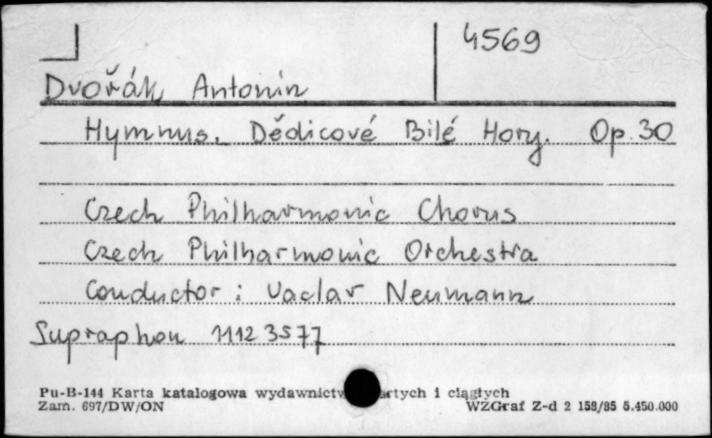 4569
Dvořák Antonin
Hymnus. Dědicové Bilé Hory. Op. 30
Czech Philharmonic Chorus
Czech Philharmonic Orchestra
Conductor: Vaclav Neumann
Supraphon 1112 3577
Pu-B-144 Karta katalogowa wydawnictw artych i ciągłych
Zam. 697/DW/ON WZGraf Z-d 2 158/85 5.450.000